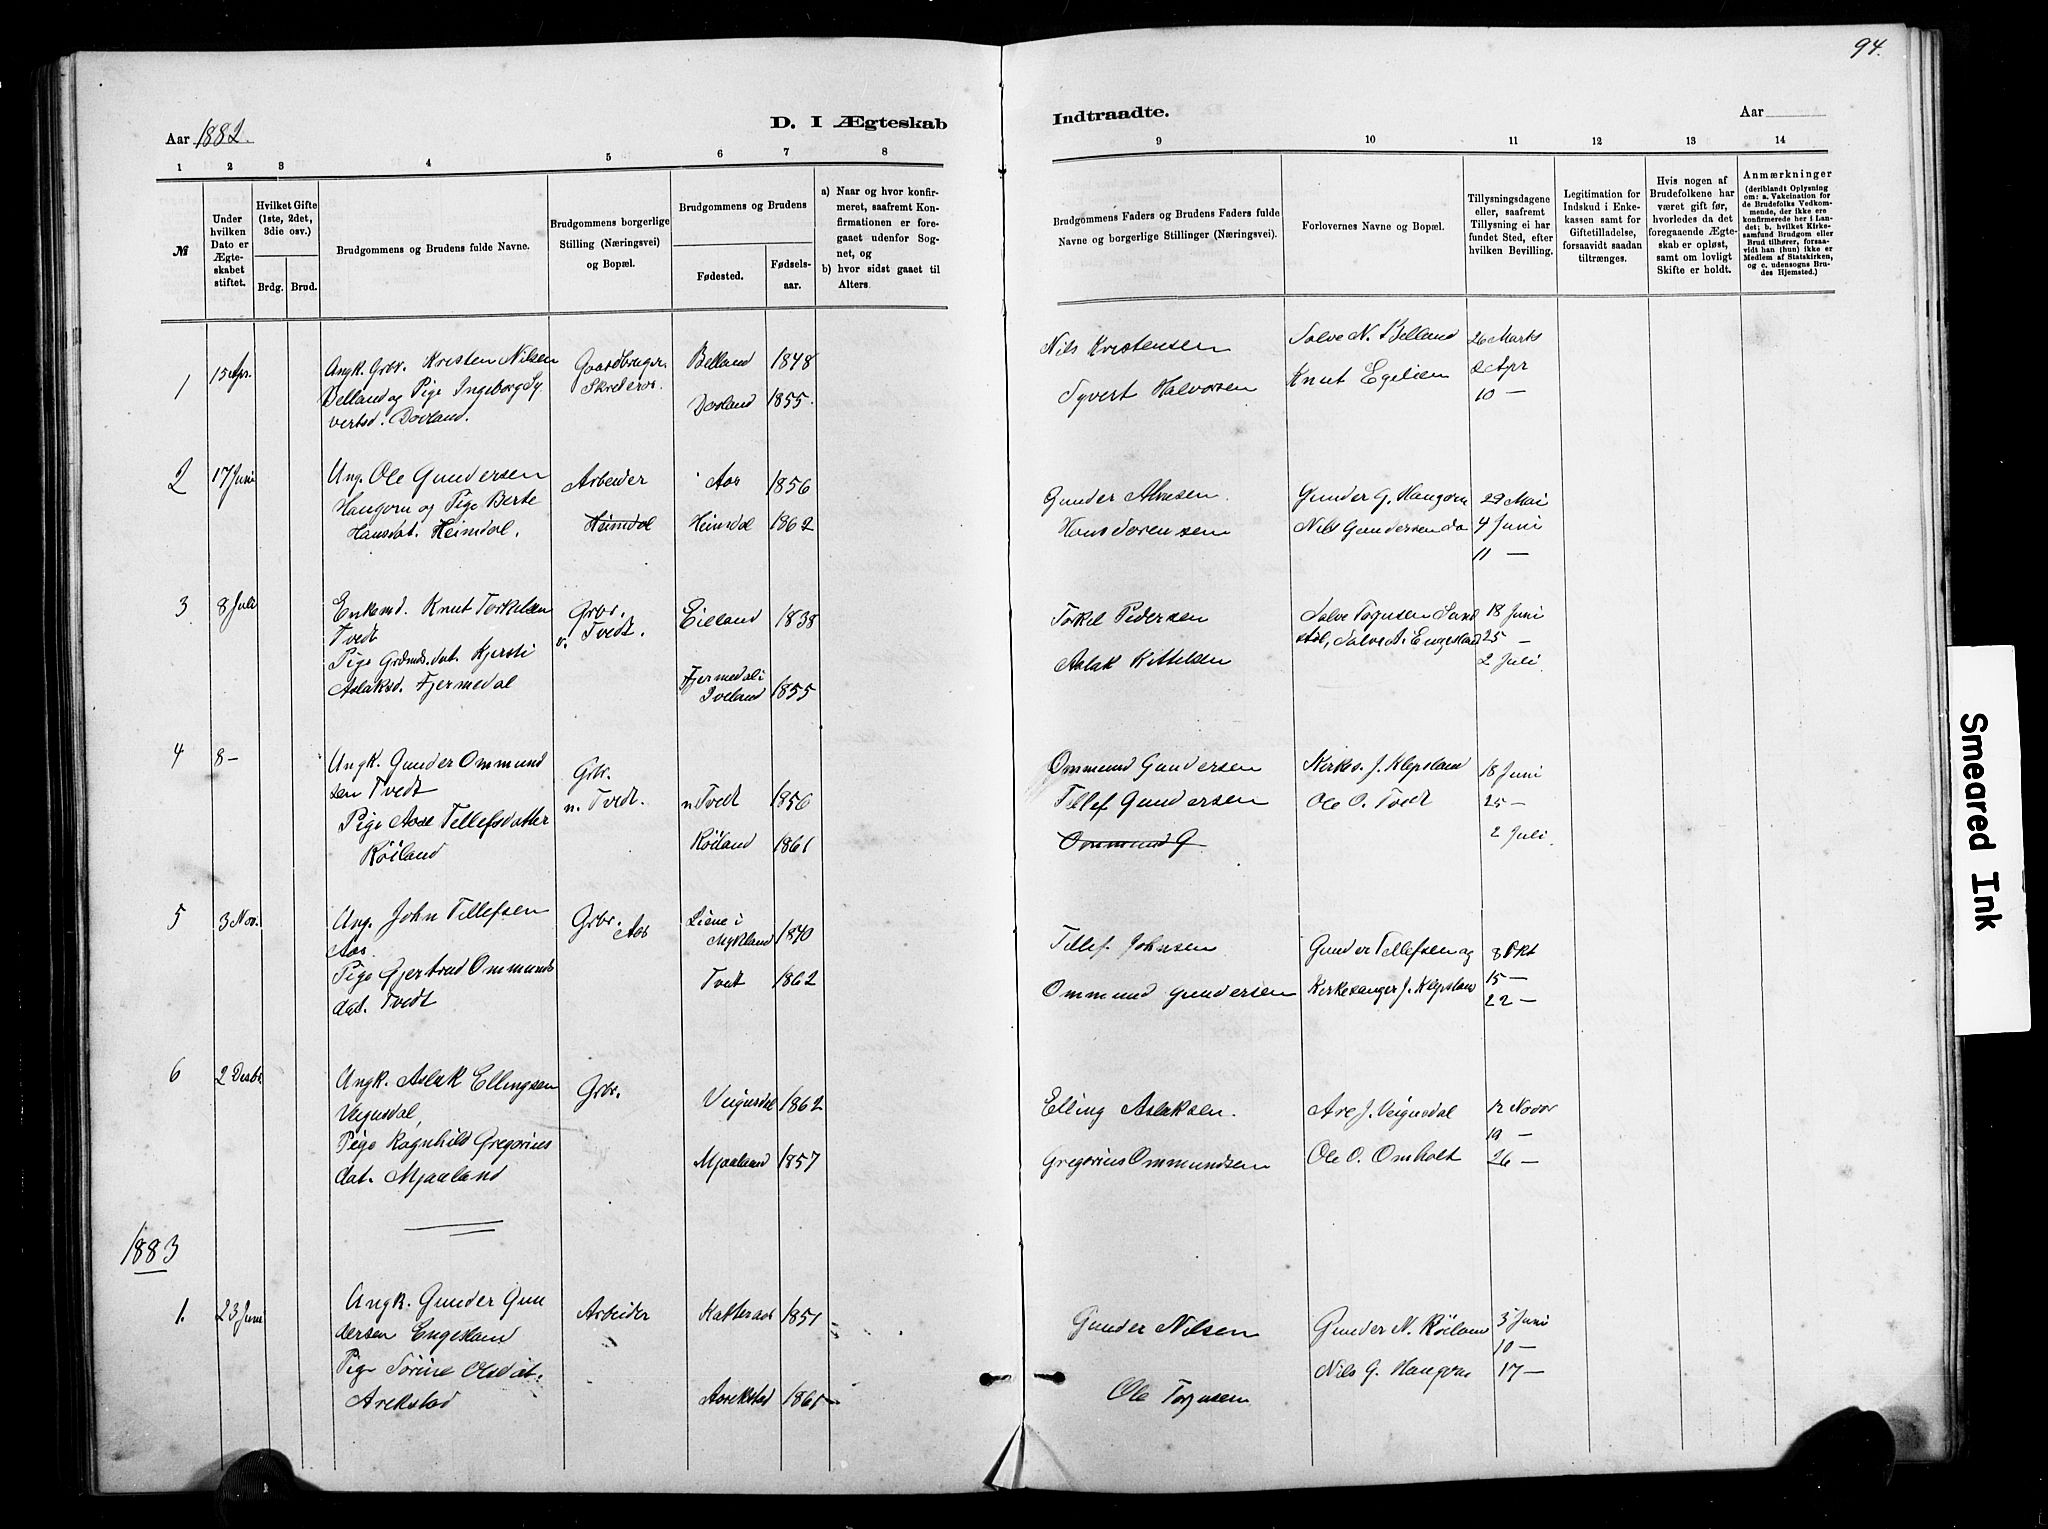 94.
Aar 1882.
D. I Ægteskab
Indtraadte.
Aar
1 2 3 4 5 6 7 8
9 10 11 12 13 14
№
Under hvilken Dato er Ægteskabet stiftet.
Hvilket Gifte (1ste, 2det, 3die osv.)
Brdg. Brud.
Brudgommens og Brudens fulde Navne.
Brudgommens borgerlige Stilling (Næringsvei) og Bopæl.
Brudgommens og Brudens
Fødested.
Fødselsaar.
a) Naar og hvor konfirmeret, saafremt Konfirmationen er foregaaet udenfor Sognet, og
b) hvor sidst gaaet til Alters.
Brudgommens Faders og Brudens Faders fulde Navne og borgerlige Stillinger (Næringsvei).
Forlovernes Navne og Bopæl.
Tillysningsdagene eller, saafremt Tillysning ei har fundet Sted, efter hvilken Bevilling.
Legitimation for Indskud i Enkekassen samt for Giftetilladelse, forsaavidt saadan tiltrænges.
Hvis nogen af Brudefolkene har været gift før, hvorledes da det foregaaende Ægteskab er opløst, samt om lovligt Skifte er holdt.
Anmærkninger
(deriblandt Oplysning om: a. Vakcination for de Brudefolks Vedkommende, der ikke ere konfirmerede her i Landet; b. hvilket Kirkesamfund Brudgom eller Brud tilhører, forsaavidt han (hun) ikke er Medlem af Statskirken, og c. udensogns Brudes Hjemsted.)
1 15 Apr. Angk. Grbr. Kristen Nilsen Gaardbruger Belland 1848
Belland og Pige Ingeborg Sy
vertsd. Dovland. Dovland 1855.
Nils Kristensen Salve N. Belland 26 Marts
Syvert Halvorsen Knut Egelien 2 Apr
10 —
2 17 Juni Ung. Ole Gundersen Arbeider Aas 1856
Haugom og Pige Berte
Hansdat. Heimdal. Heimdal Heimdal 1862
Gunder Gunder G. Haugom 29 Mai
Hans Sørensen Nils Gundersen do 4 Juni
11 —
3 8 Juli Enkemd. Knut Torkelsen Grbr. Eieland 1838
Tvedt v. Tvedt.
Pige Grdmds. dat. Kjersti
Aslaksd. Fjermedal Fjermedal i Iveland 1855
Torkel Pedersen Salve 18 Juni
Aslak Kittelsen Salve A. Engesland 25 —
2 Juli
4 8 — Ungk. Gunder Ommund
sen Tvedt Grbr. n. Tvedt. n Tvedt 1856
Pige Aase Tellefsdatter
Røiland Røiland 1861
Ommund Gundersen Kirkes. J. Klepsland 18 Juni
Tellef Gundersen Ole O. Tvedt 25 —
Ommund G 2 Juli
5 3 Nov. Ung. John Tellefsen Grbr. Aas Liene i Mykland 1840
Aas.
Pige Gjertrud Ommunds
dat. Tvedt Tvedt 1862
Tellef Johnsen Gunder Tellefsen og 8 Okt
Ommund Gundersen Kirkesanger J. Klepsland 15 —
22 —
6 2 Desbr. Ungk. Aslak Ellingsen Grbr. Veigusdal 1862
Vegusdal,
Pige Ragnhild Gregorius
dat. Mjaaland Mjaaland 1857
Elling Aslaksen. Are J. Veigusdal 12 Novbr
19 —
Gregorius Ommundsen Ole O. Omholt 26 —
1883
1. 23 Juni Ungk. Gunder Gun Arbeider Katteraas 1851
dersen Engesland
Pige Sørine Olsdat.
Arekstad Aarekstad 1861
Gunder Nilsen Gunder N. Røiland 3 Juni
10 —
Nils G. Haugom 17 —
Ole Torjusen
Smeared Ink